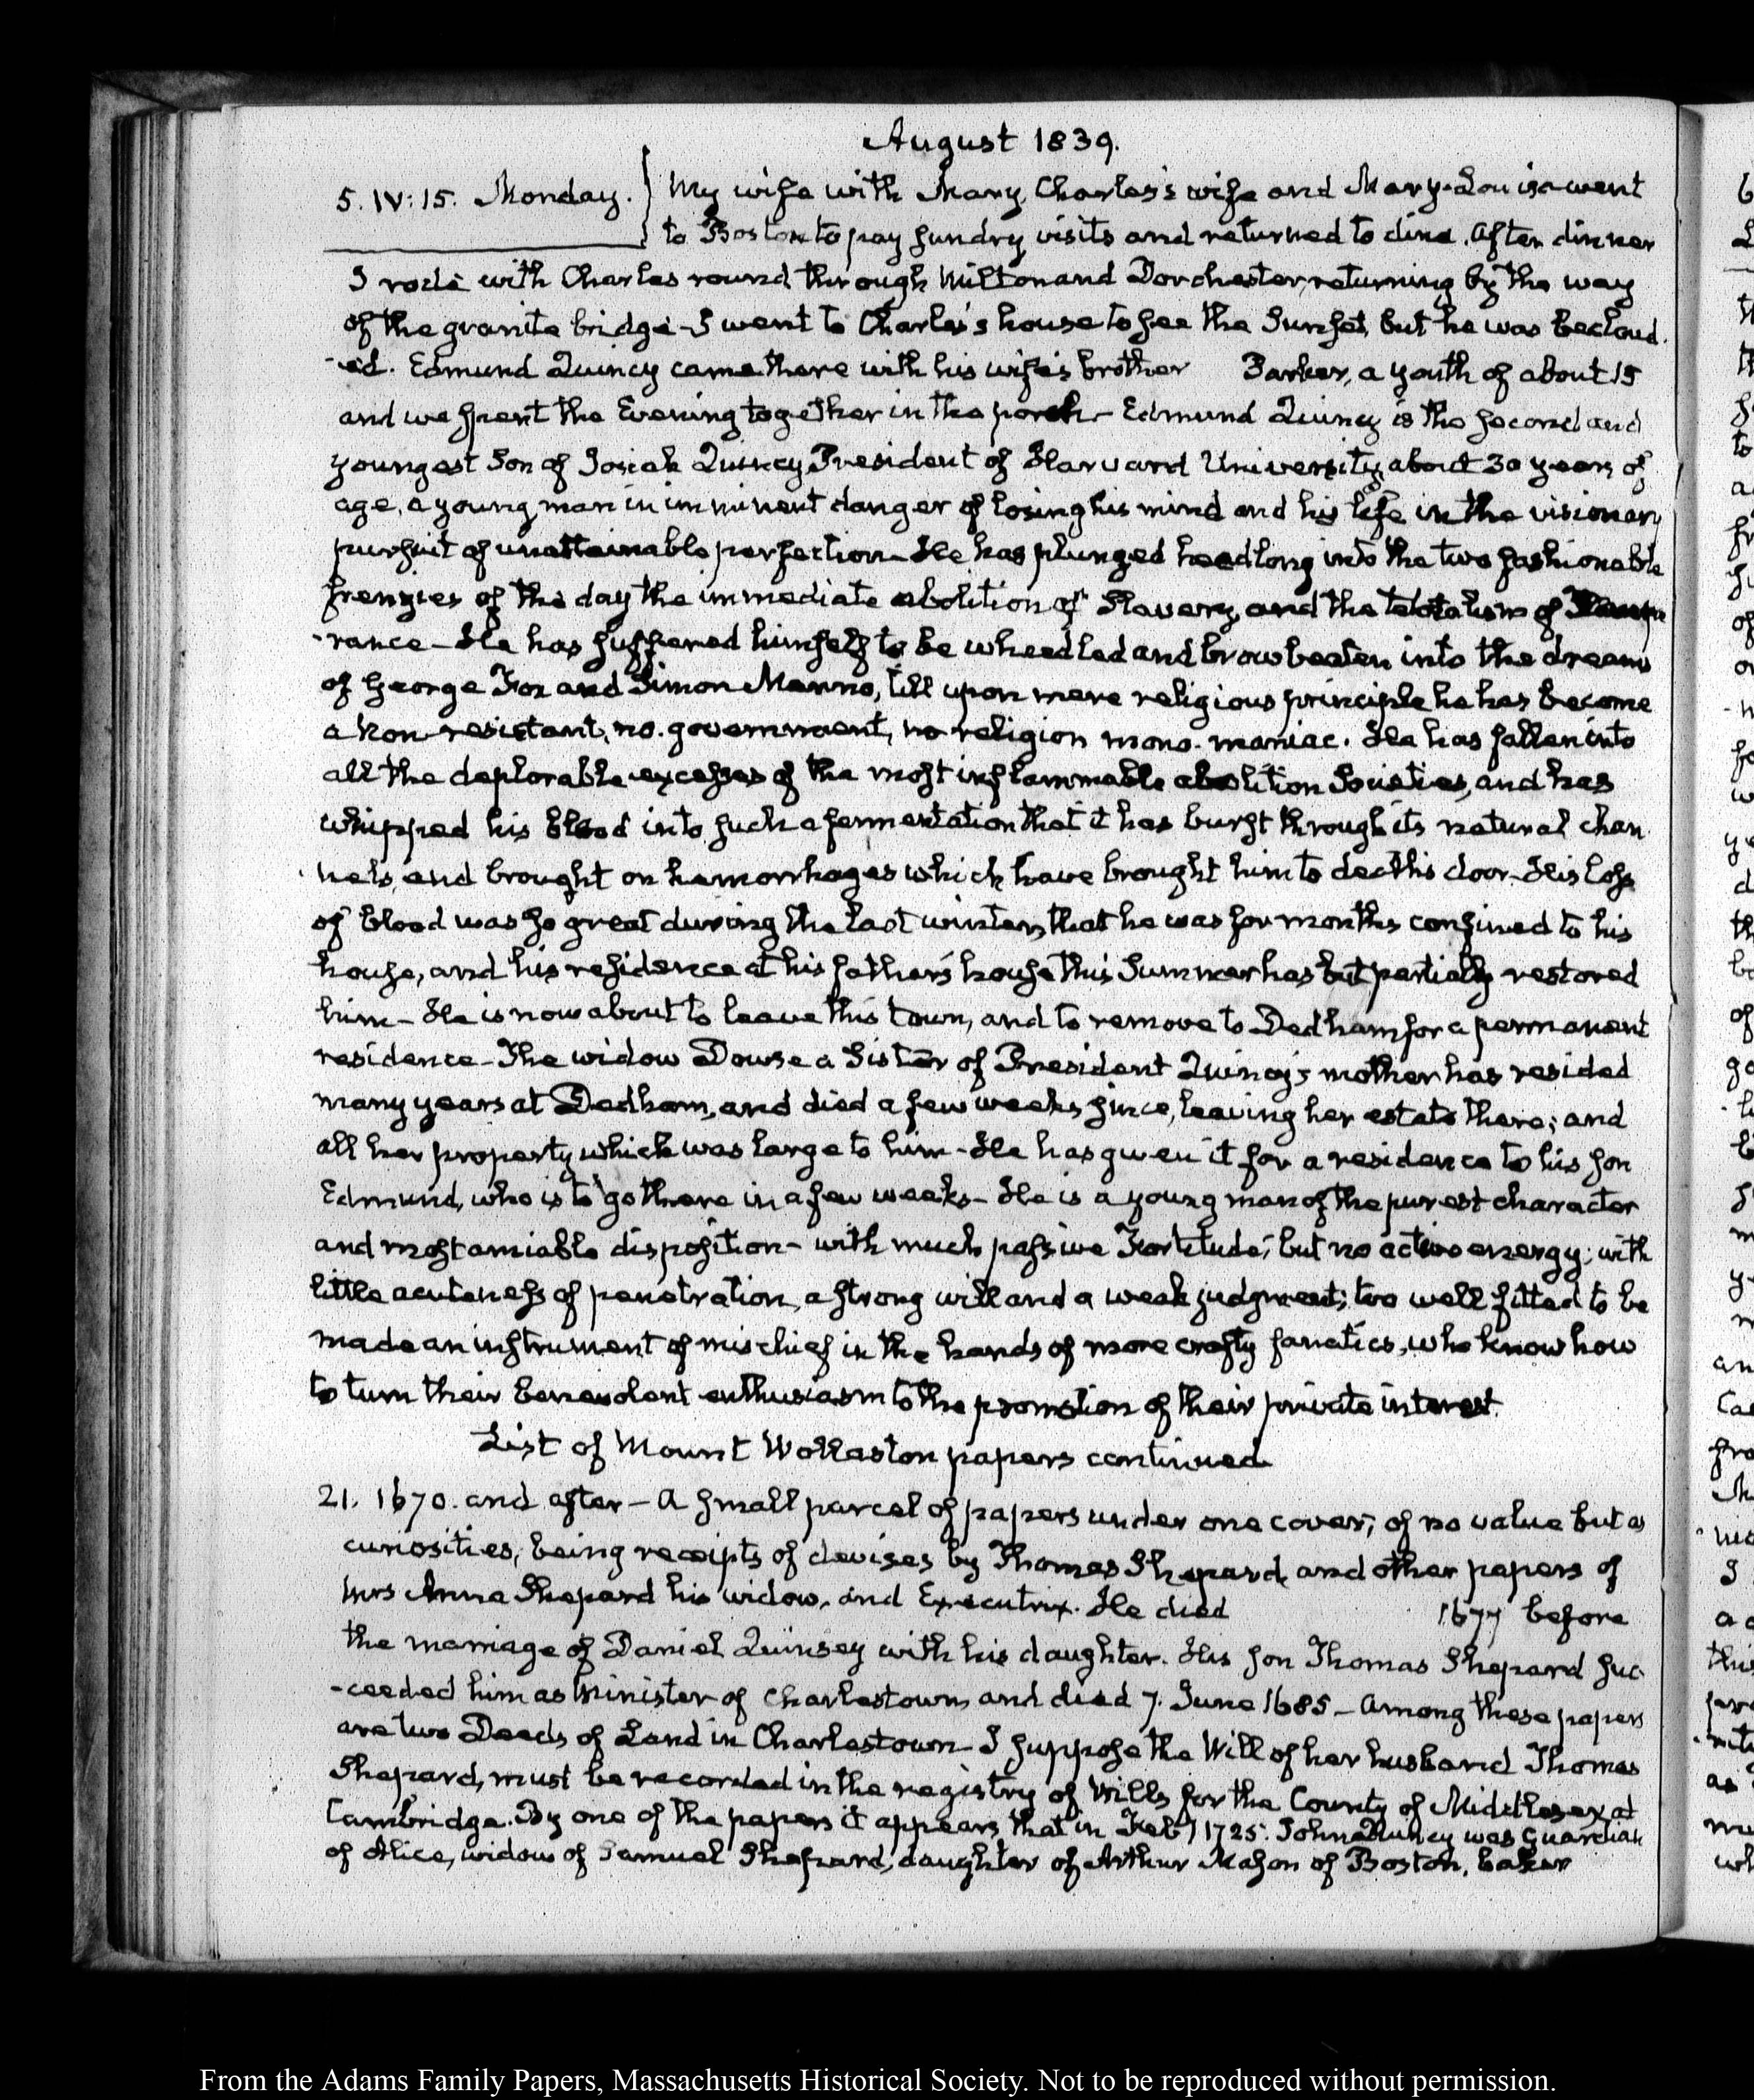 August 1839.
5. IV:15. Monday. } My wife with Mary, Charles's wife and Mary-Louisa went
to Boston to pay sundry visits and returned to dine. After dinner
I rode with Charles round through Milton and Dorchester, returning by the way
of the granite bridge - I went to Charles's house to see the Sunset, but he was becloud-
-ed. Edmund Quincy came there with his wife's brother Parker, a youth of about 15
and we spent the Evening together in the porch - Edmund Quincy is the second and
youngest Son of Josiah Quincy President of Harvard University, about 30 years of
age, a young man in imminent danger of losing his mind and his life in the visionary
pursuit of unattainable perfection - He has plunged headlong into the two fashionable
frenzies of the day the immediate abolition of Slavery, and the teetotalism of Tempe
-rance - He has suffered himself to be wheedled and browbeaten into the dreams
of George Fox and Simon Menno, till upon mere religious principle he has become
a non-resistant, no-government, no religion mono-maniac. He has fallen into
all the deplorable excesses of the most inflammable abolition Societies, and has
whipped his blood into such a fermentation that it has burst through its natural chan
-nels, and brought on hemorrhages which have brought him to death's door - His loss
of blood was so great during the last winter, that he was for months confined to his
house, and his residence at his father's house this Summer has but partially restored
him - He is now about to leave this town, and to remove to Dedham for a permanent
residence - The widow Dowse a Sister of President Quincy's mother has resided
many years at Dedham, and died a few weeks since, leaving her estate there; and
all her property which was large to him - He has given it for a residence to his son
Edmund, who is to go there in a few weeks - He is a young man of the purest character
and most amiable disposition - with much passive Fortitude, but no active energy; with
little acuteness of penetration, a strong will and a weak judgment; too well fitted to be
made an instrument of mischief in the hands of more crafty fanatics, who know how
to turn their benevolent enthusiasm to the promotion of their private interest.
List of Mount Wollaston papers continued
21. 1670. and after - A small parcel of papers under one cover; of no value but as
curiosities, being receipts of devises by Thomas Shepard, and other papers of
Mrs Anna Shepard his widow, and Executrix. He died 1677 before
the marriage of Daniel Quinsey with his daughter. His son Thomas Shepard suc-
-ceeded him as Minister of Charlestown, and died 7. June 1685 - Among these papers
are two Deeds of Land in Charlestown - I suppose the Will of her husband Thomas
Shepard, must be recorded in the registry of Wills for the County of Middlesex at
Cambridge. By one of the papers it appears that in Feby 1725. John Quincy was Guardian
of Alice, widow of Samuel Shepard, daughter of Arthur Mason of Boston, baker
From the Adams Family Papers, Massachusetts Historical Society. Not to be reproduced without permission.